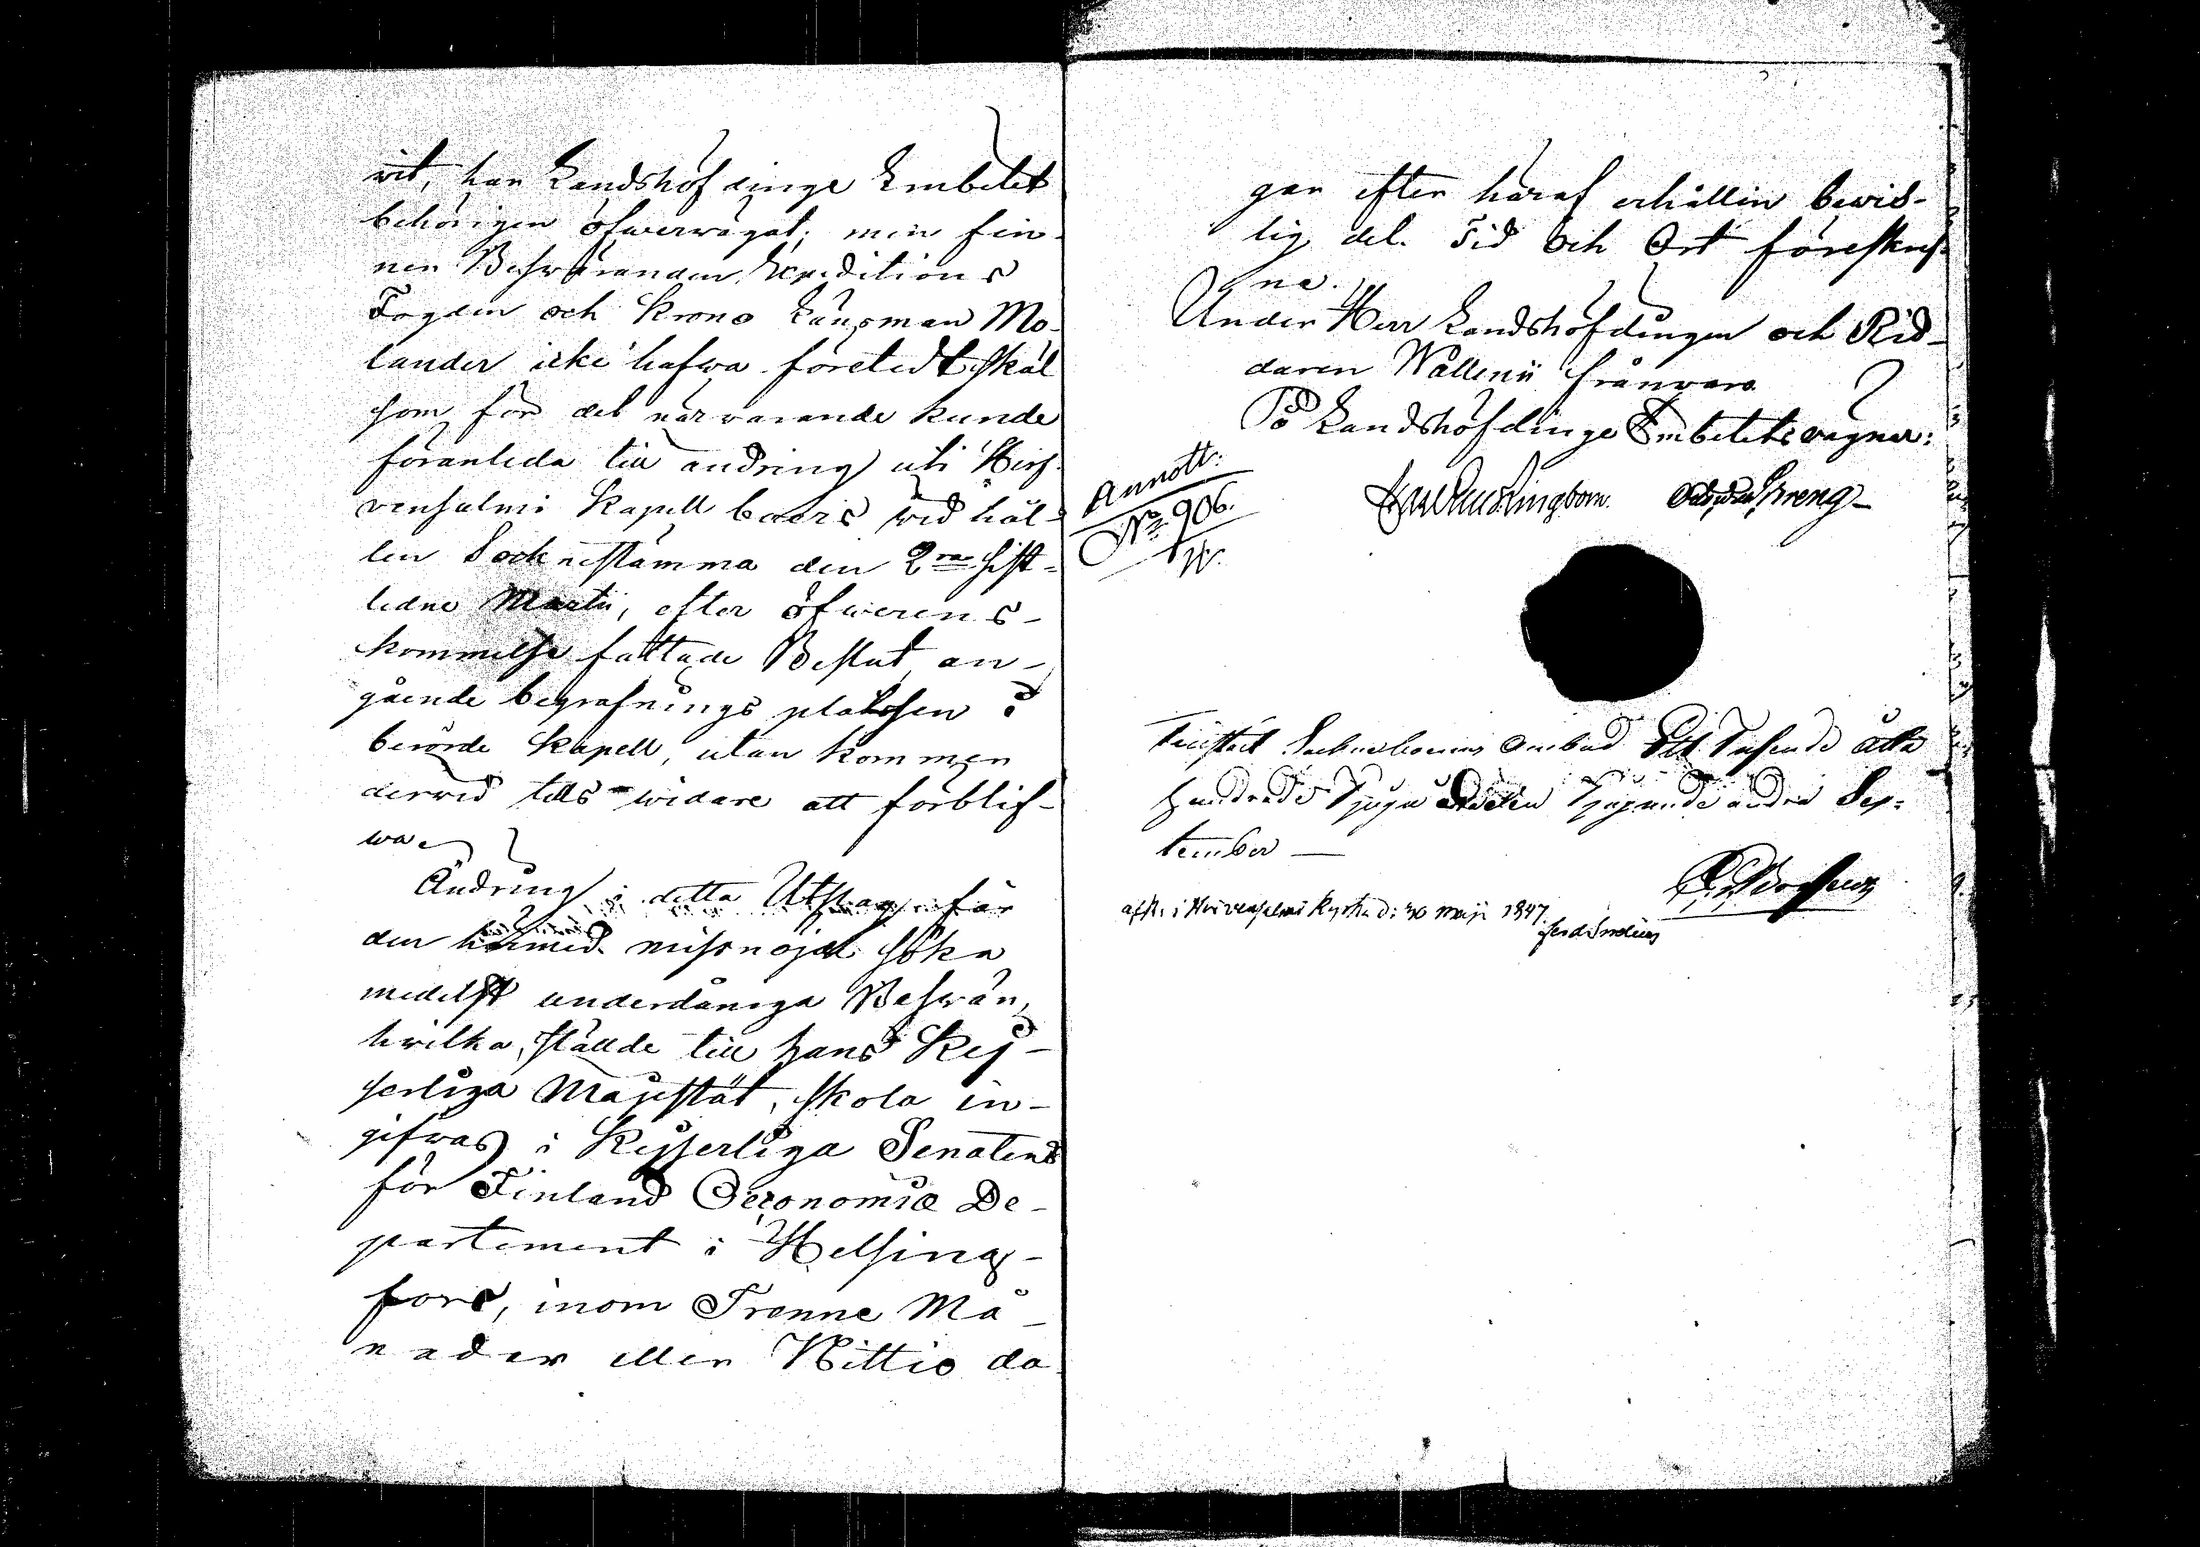 vit, har Landshöfdinge Embetet
behörigen öfwervägat; men fin-
ner Beswäranden Expeditions
Fogden och Krono Länsman Mo-
lander icke hafwa företedt skäl
som för det närvarande kunde
föranleda till ändring uti Hirf-
vensalmi Kapell boers wid hål-
len Socknestämma den 2ra sist-
ledne Martii, efter öfwerens-
kommelse fattade Beslut an-
gående begrafnings platsen i
berörde Kapell, utan kommer
derwid tills widare att förblif-
wa.
Ändring i detta Utslag får
den härmed missnöjd söka
medelst underdåniga Beswär,
hvilka, stälde till Hans Kej-
serliga Majestät, skola in-
gifvas i Kejserliga Senatens
för Finland Oeconomiæ De-
partement i Helsing-
fors, inom Trenne Må-
nader eller Nittio da
gar efter häraf erhållen bewis-
lig del. Tid och Ort föreskrif-
ne.
Under Herr Landshöfdingen och Rid-
daren Wallenii frånvaro
På Landshöfdinge Embetets vägnar:
Annott:
No 906.
Ringbom. Spreng
Sockneboernes ombud Ett Tusende åtta
Hundrade Tjugu Tjugunde andra Sep-
tember —
i Hirvensalmi kyrka d: 30 maji 1847.